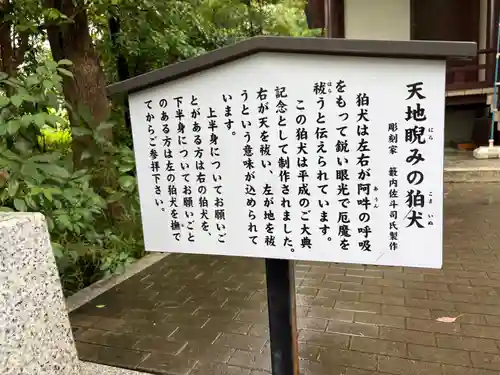 天地睨みの狛犬
にら
こま
いぬ
彫刻家　籔内佐斗司氏製作
狛犬は左右が阿吽の呼吸
あうん
をもって鋭い眼光で厄魔を
祓うと伝えられています。
はら
この狛犬は平成のご大典
記念として制作されました。
右が天を祓い、左が地を祓
うという意味が込められて
います。
上半身についてお願いご
とがある方は右の狛犬を、
下半身についてお願いごと
のある方は左の狛犬を撫で
な
てからご参拝下さい。